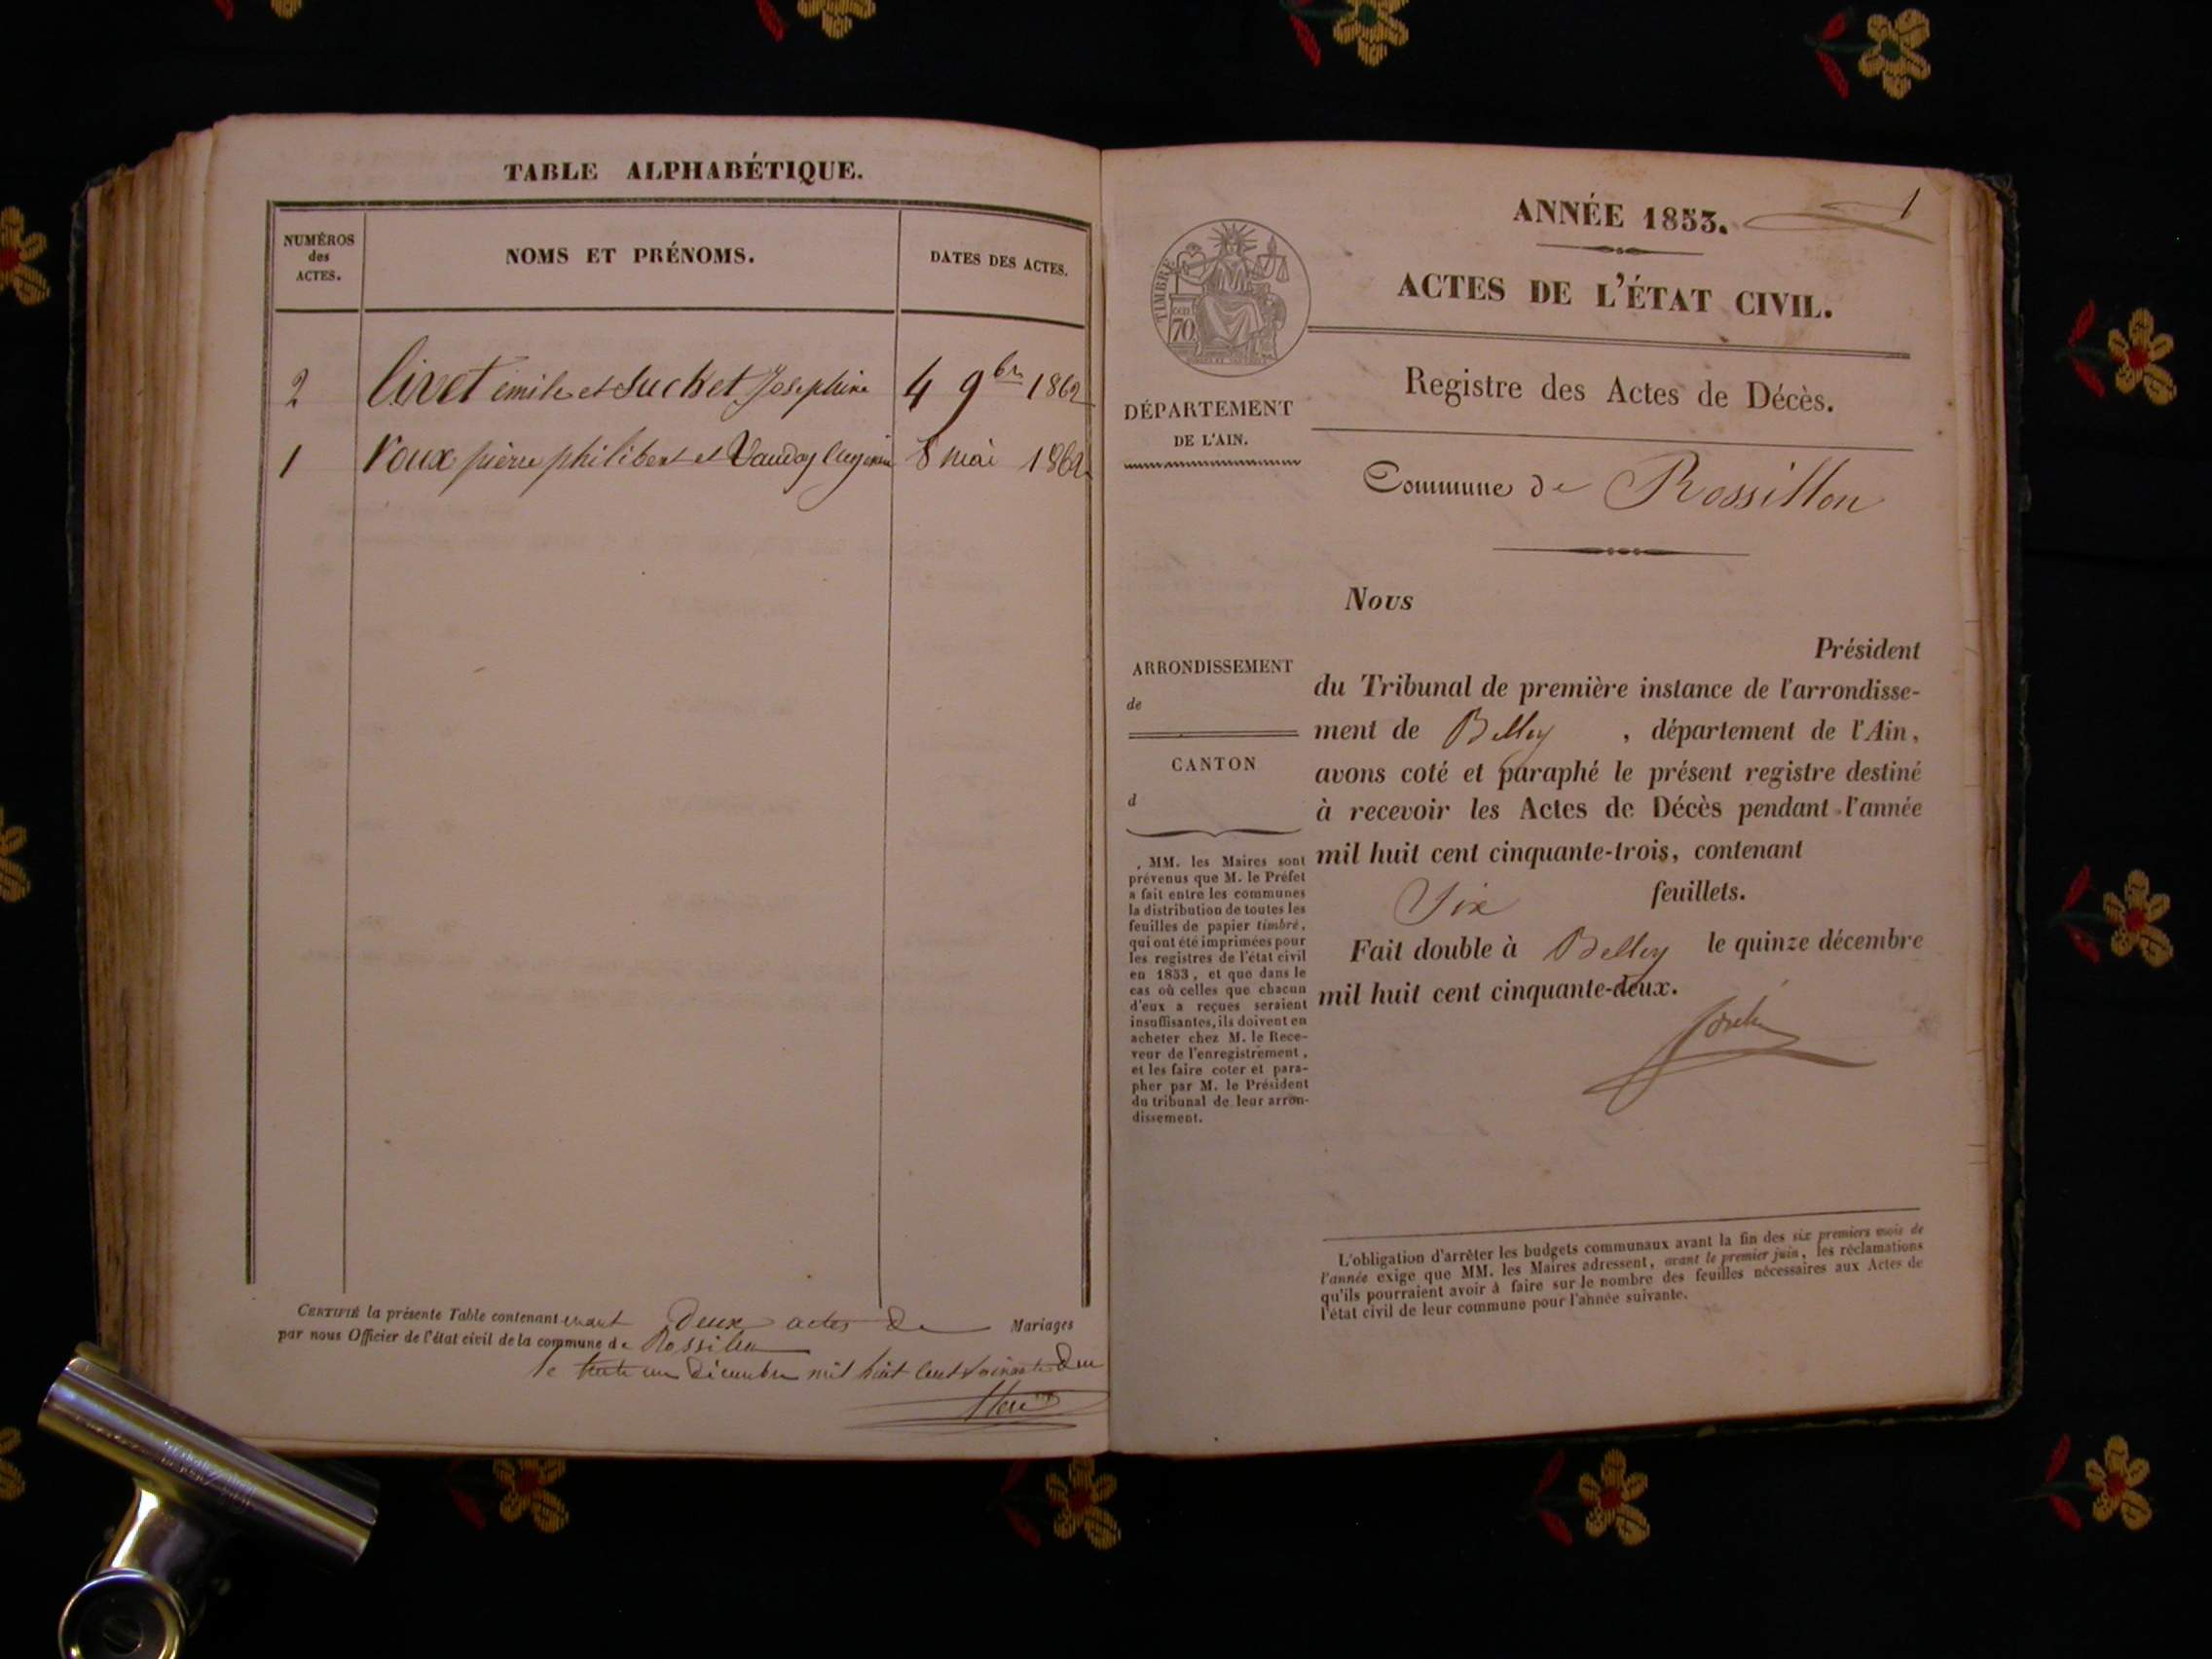 TABLE ALPHABÉTIQUE.
NUMÉROS
des
ACTES.
NOMS ET PRÉNOMS.
DATES DES ACTES.
2 Livet émile et Suchet Josephine 4 9bre 1862
1 Roux pierre philibert et Vauday Eugénie 8 mai 1862
CERTIFIÉ la présente Table contenant deux actes de Mariages
par nous Officier de l'état civil de la commune de Rossillon
le trente un décembre mil huit cent soixante deux
1
ANNÉE 1853.
ACTES DE L'ÉTAT CIVIL.
TIMBRE
70
Registre des Actes de Décès.
DÉPARTEMENT
DE L'AIN.
Commune de Rossillon
Nous
Président
du Tribunal de première instance de l'arrondisse-
ment de Belley , département de l'Ain,
avons coté et paraphé le présent registre destiné
à recevoir les Actes de Décès pendant l'année
mil huit cent cinquante-trois, contenant
Six feuillets.
Fait double à Belley le quinze décembre
mil huit cent cinquante-deux.
ARRONDISSEMENT
de
CANTON
d
MM. les Maires sont
prévenus que M. le Préfet
a fait entre les communes
la distribution de toutes les
feuilles de papier timbré,
qui ont été imprimées pour
les registres de l'état civil
en 1853, et que dans le
cas où celles que chacun
d'eux a reçues seraient
insuffisantes, ils doivent en
acheter chez M. le Rece-
veur de l'enregistrement,
et les faire coter et para-
pher par M. le Président
du tribunal de leur arron-
dissement.
L'obligation d'arrêter les budgets communaux avant la fin des six premiers mois de
l'année exige que MM. les Maires adressent, avant le premier juin, les réclamations
qu'ils pourraient avoir à faire sur le nombre des feuilles nécessaires aux Actes de
l'état civil de leur commune pour l'année suivante.